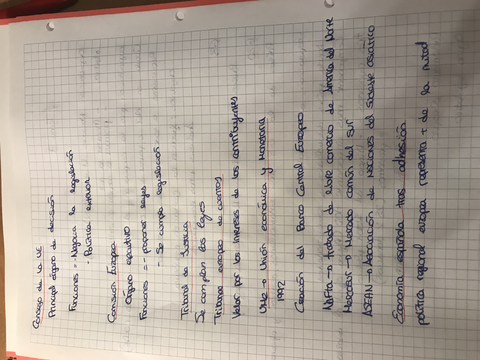 Consejo de la UE
Principal órgano de decisión
Funciones = - Negocia la legislación
- Política exterior
Comisión Europea
Órgano ejecutivo
Funciones = - proponer leyes
- Se cumpla legislación
Tribunal de Justicia
Se cumplan las leyes
Tribunal europeo de cuentas
Velar por los intereses de los contribuyentes
UME → Unión económica y monetaria
1992
Creación del Banco Central Europeo
Nafta → tratado de libre comercio de America del Norte
Mercosur → Mercado común del Sur
ASEAN → Asociación de naciones del sudeste asiático
Economía española tras adhesión
política regional europea representa + de la mitad